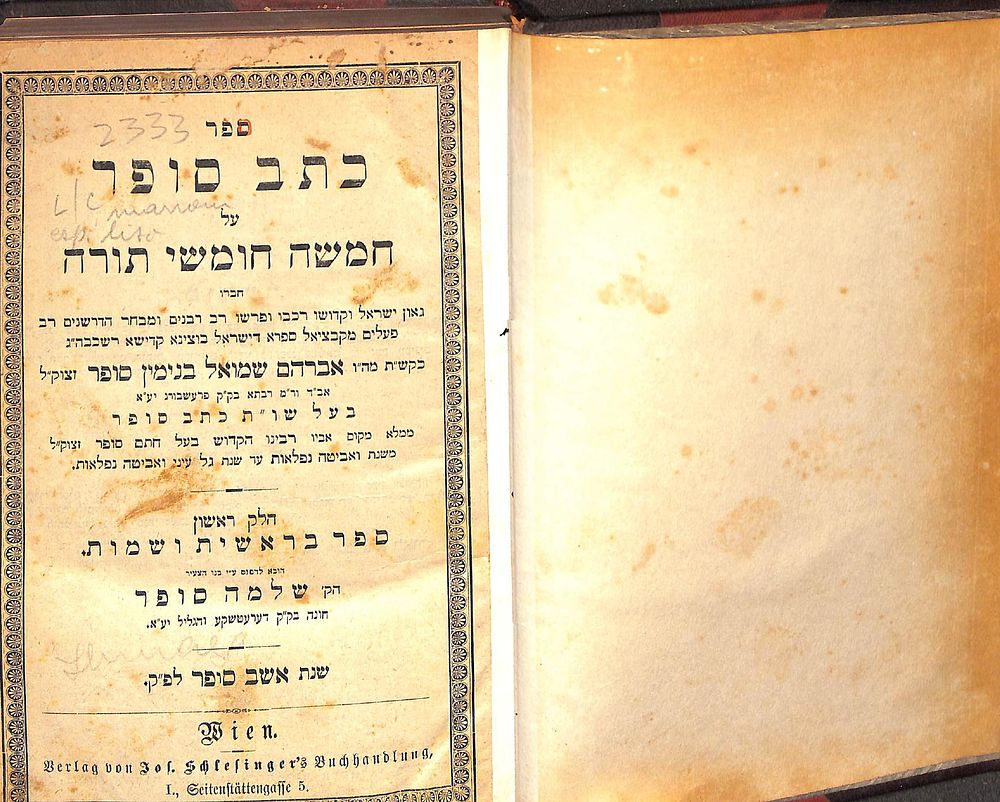 ספר
2333
כתב סופר
L/C
על
חמשה חומשי תורה
חברו
גאון ישראל וקדושו רכבו ופרשו רב רבנים ומבחר הדרשנים רב
פעלים מקבציאל ספרא דישראל בוצינא קדישא רשכבה״ג
כקש״ת מה״ו אברהם שמואל בנימין סופר זצוק״ל
אב״ד ור״מ רבתא בק״ק פרעשבורג יע״א
בעל שו״ת כתב סופר
ממלא מקום אביו רבינו הקדוש בעל חתם סופר זצוק״ל
משנת ואביטה נפלאות עד שנת גל עיני ואביטה נפלאות.
חלק ראשון
ספר בראשית ושמות.
הובא לדפוס ע״י בנו הצעיר
הק׳ שלמה סופר
חונה בק״ק דערעטשקע והגליל יע״א.
שנת אשב סופר לפ״ק.
Wien.
Verlag von Jos. Schlesinger's Buchhandlung,
I., Seitenstättengasse 5.